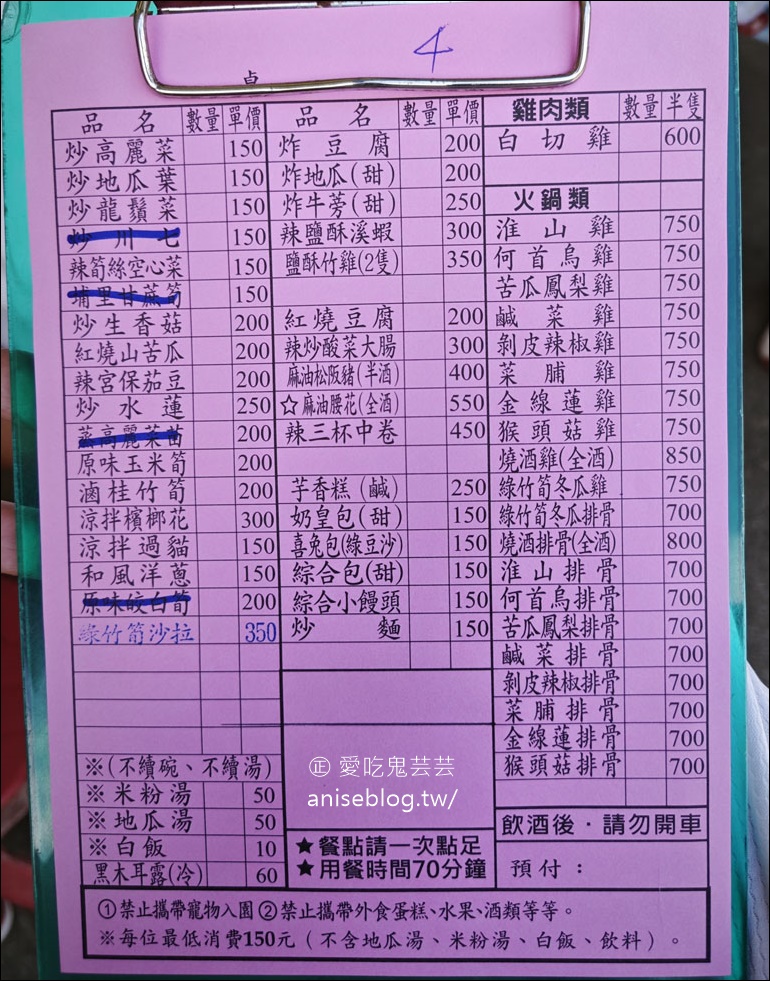 4
桌
品名 數量 單價
炒高麗菜 150
炒地瓜葉 150
炒龍鬚菜 150
炒川七 150
辣筍絲空心菜 150
埔里甘蔗筍 150
炒生香菇 200
紅燒山苦瓜 200
辣宮保茄豆 200
炒水蓮 250
蒸高麗菜苗 200
原味玉米筍 200
滷桂竹筍 200
涼拌檳榔花 300
涼拌過貓 150
和風洋蔥 150
原味皎白筍 200
綠竹筍沙拉 350
※(不續碗、不續湯)
※米粉湯 50
※地瓜湯 50
※白飯 10
黑木耳露(冷) 60
品名 數量 單價
炸豆腐 200
炸地瓜(甜) 200
炸牛蒡(甜) 250
辣鹽酥溪蝦 300
鹽酥竹雞(2隻) 350
紅燒豆腐 200
辣炒酸菜大腸 300
麻油松阪豬(半酒) 400
☆麻油腰花(全酒) 550
辣三杯中卷 450
芋香糕(鹹) 250
奶皇包(甜) 150
喜兔包(綠豆沙) 150
綜合包(甜) 150
綜合小饅頭 150
炒麵 150
㊣ 愛吃鬼芸芸
aniseblog.tw/
★餐點請一次點足
★用餐時間70分鐘
雞肉類 數量 半隻
白切雞 600
火鍋類
淮山雞 750
何首烏雞 750
苦瓜鳳梨雞 750
鹹菜雞 750
剝皮辣椒雞 750
菜脯雞 750
金線蓮雞 750
猴頭菇雞 750
燒酒雞(全酒) 850
綠竹筍冬瓜雞 750
綠竹筍冬瓜排骨 700
燒酒排骨(全酒) 800
淮山排骨 700
何首烏排骨 700
苦瓜鳳梨排骨 700
鹹菜排骨 700
剝皮辣椒排骨 700
菜脯排骨 700
金線蓮排骨 700
猴頭菇排骨 700
飲酒後·請勿開車
預付：
①禁止攜帶寵物入園②禁止攜帶外食蛋糕、水果、酒類等等。
※每位最低消費150元（不含地瓜湯、米粉湯、白飯、飲料）。